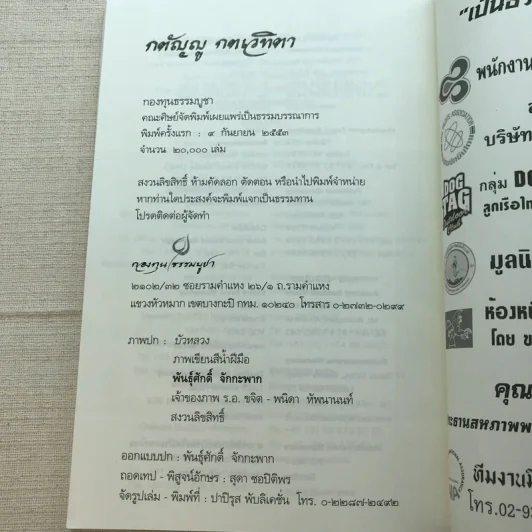 กตัญญู กตเวทิตา
กองทุนธรรมบูชา
คณะศิษย์จัดพิมพ์เผยแพร่เป็นธรรมบรรณาการ
พิมพ์ครั้งแรก : ๙ กันยายน ๒๕๕๓
จำนวน ๒๐,๐๐๐ เล่ม
สงวนลิขสิทธิ์ ห้ามคัดลอก ตัดตอน หรือนำไปพิมพ์จำหน่าย
หากท่านใดประสงค์จะพิมพ์แจกเป็นธรรมทาน
โปรดติดต่อผู้จัดทำ
กองทุนธรรมบูชา
๒๑๐๒/๓๒ ซอยรามคำแหง ๒๖/๑ ถ.รามคำแหง
แขวงหัวหมาก เขตบางกะปิ กทม. ๑๐๒๔๐ โทรสาร ๐-๒๗๓๒-๐๒๙๙
ภาพปก : บัวหลวง
ภาพเขียนสีน้ำฝีมือ
พันธุ์ศักดิ์ จักกะพาก
เจ้าของภาพ ร.อ. ขจิต - พนิดา หัพนานนท์
สงวนลิขสิทธิ์
ออกแบบปก : พันธุ์ศักดิ์ จักกะพาก
ถอดเทป - พิสูจน์อักษร : สุดา ซอปิติพร
จัดรูปเล่ม - พิมพ์ที่ : ปาปิรุส พับลิเคชั่น โทร. ๐-๒๒๘๗-๒๔๙๒
"เป็น
พนักงาน
บริษัท
DOG TAG
กลุ่ม DO
ลูกเรือไท
มูลนิ
ห้องหนั
โดย ข
คุณ
ะธานสหภาพพ
ทีมงานมิ
โทร.02-9